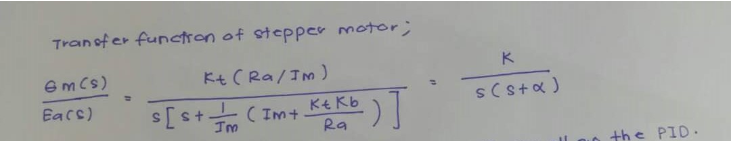 Transfer function of stepper motor;
θm(s)/Ea(s) = Kt(Ra/Im) / s[s + 1/Im (Im + KtKb/Ra)] = K / s(s+α)
the PID.